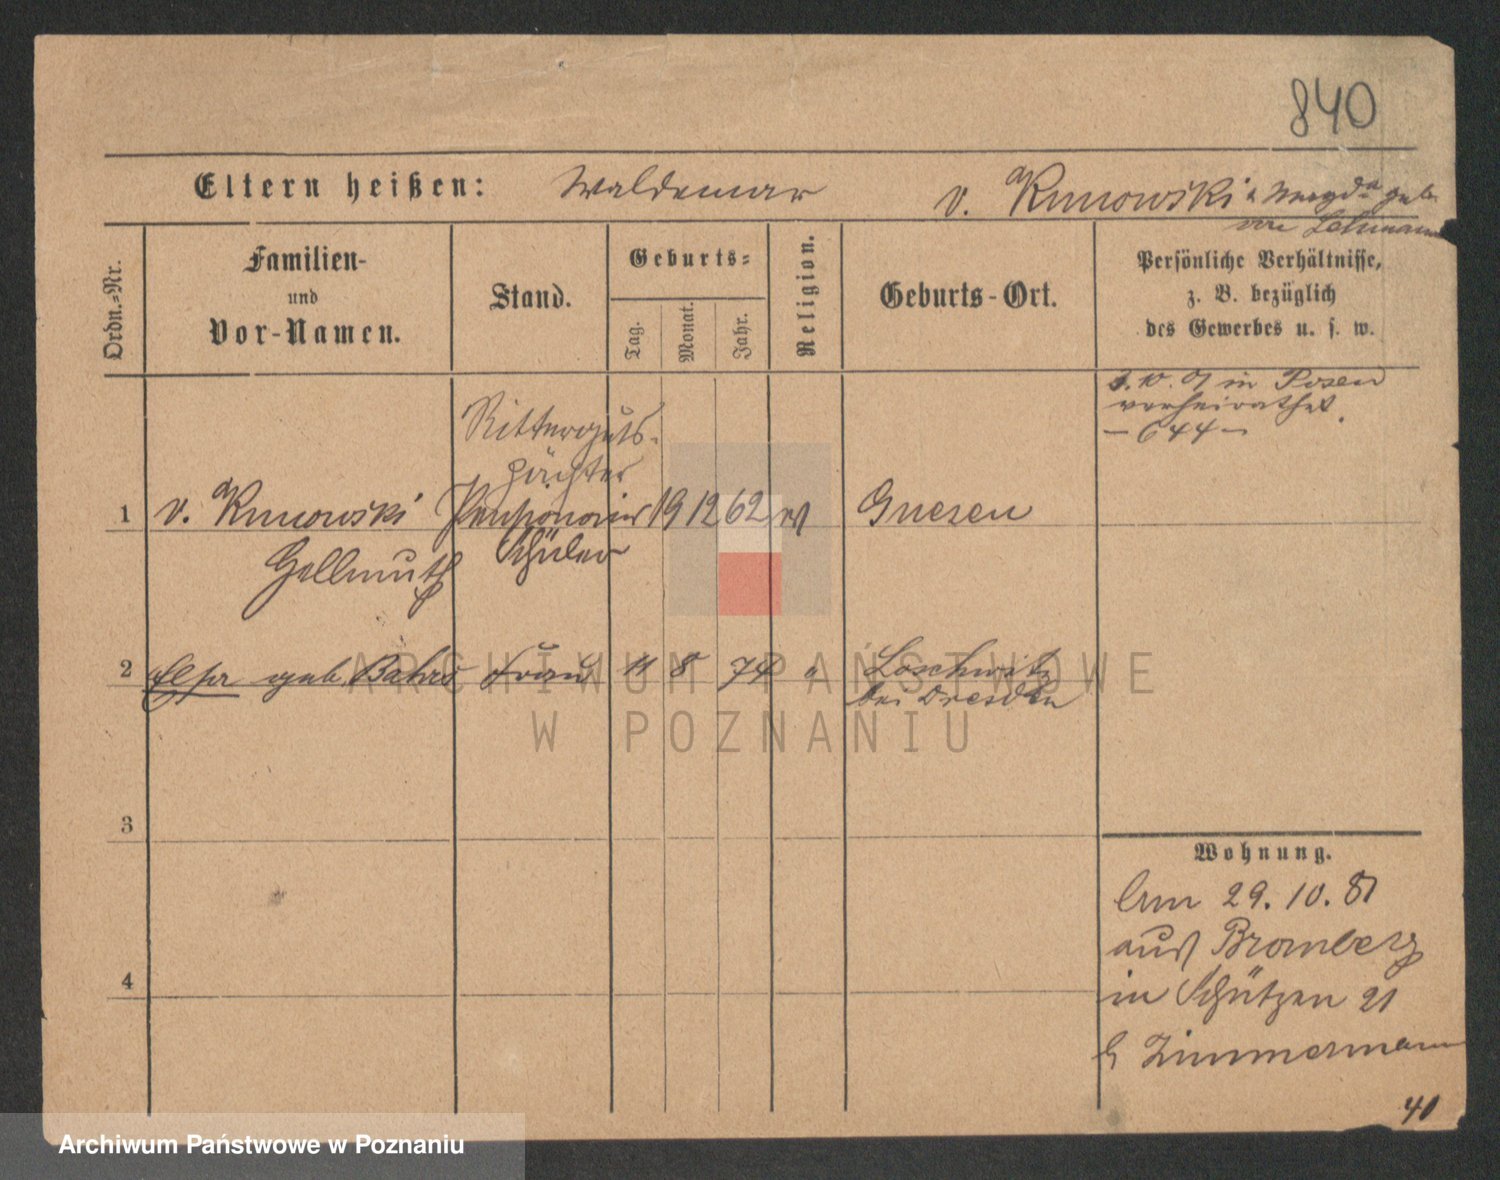 840
Eltern heißen: Waldemar v. Kunowski u. Magda geb.
von Lehmann
Ordn.-Nr.
Familien-
und
Vor-Namen.
Stand.
Geburts-
Tag.
Monat.
Jahr.
Religion.
Geburts-Ort.
Persönliche Verhältnisse,
z. B. bezüglich
des Gewerbes u. s. w.
3. 10. 01 in Posen
verheirathet.
— 644 —
Ritterguts-
pächter
1 v. Kunowski Pensionair 19 12 62 ev Gnesen
Hellmuth Schüler
2 Elsa geb. Bahrs Frau 11 8 74 " Loschwitz
bei Dresden
3
4
Wohnung.
Am 29. 10. 81
aus Bromberg
in Schützen 21
b Zimmermann
40
ARCHIWUM PAŃSTWOWE
W POZNANIU
Archiwum Państwowe w Poznaniu